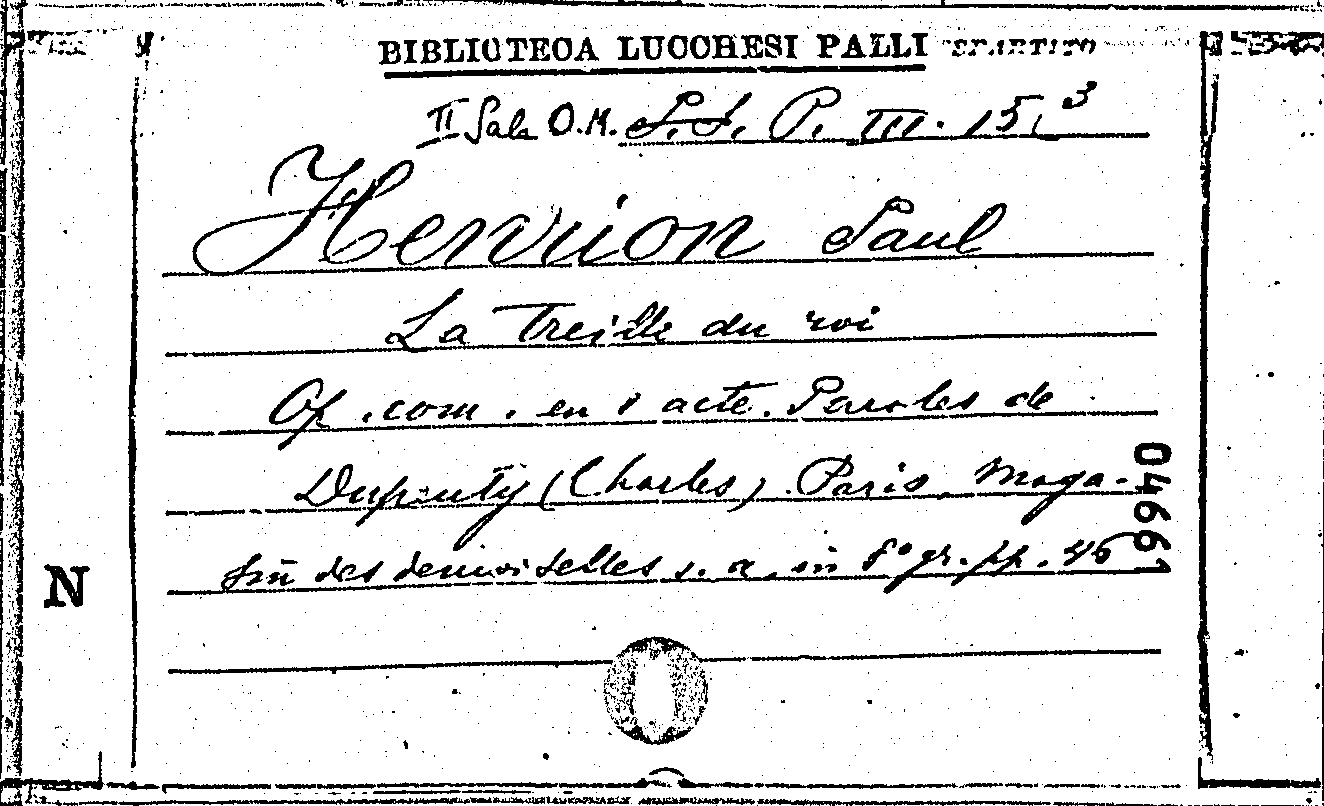 BIBLIOTECA LUCCHESI PALLI SPARTITO
II Sala O.M. S.S. P. III. 15, 3
Henrion Paul
La Treille du roi
Op. com. en 1 acte. Paroles de
Dupeuty (Charles). Paris, Maga-
sin des demoiselles s. a. in 8° gr. pp. 46
04661
N